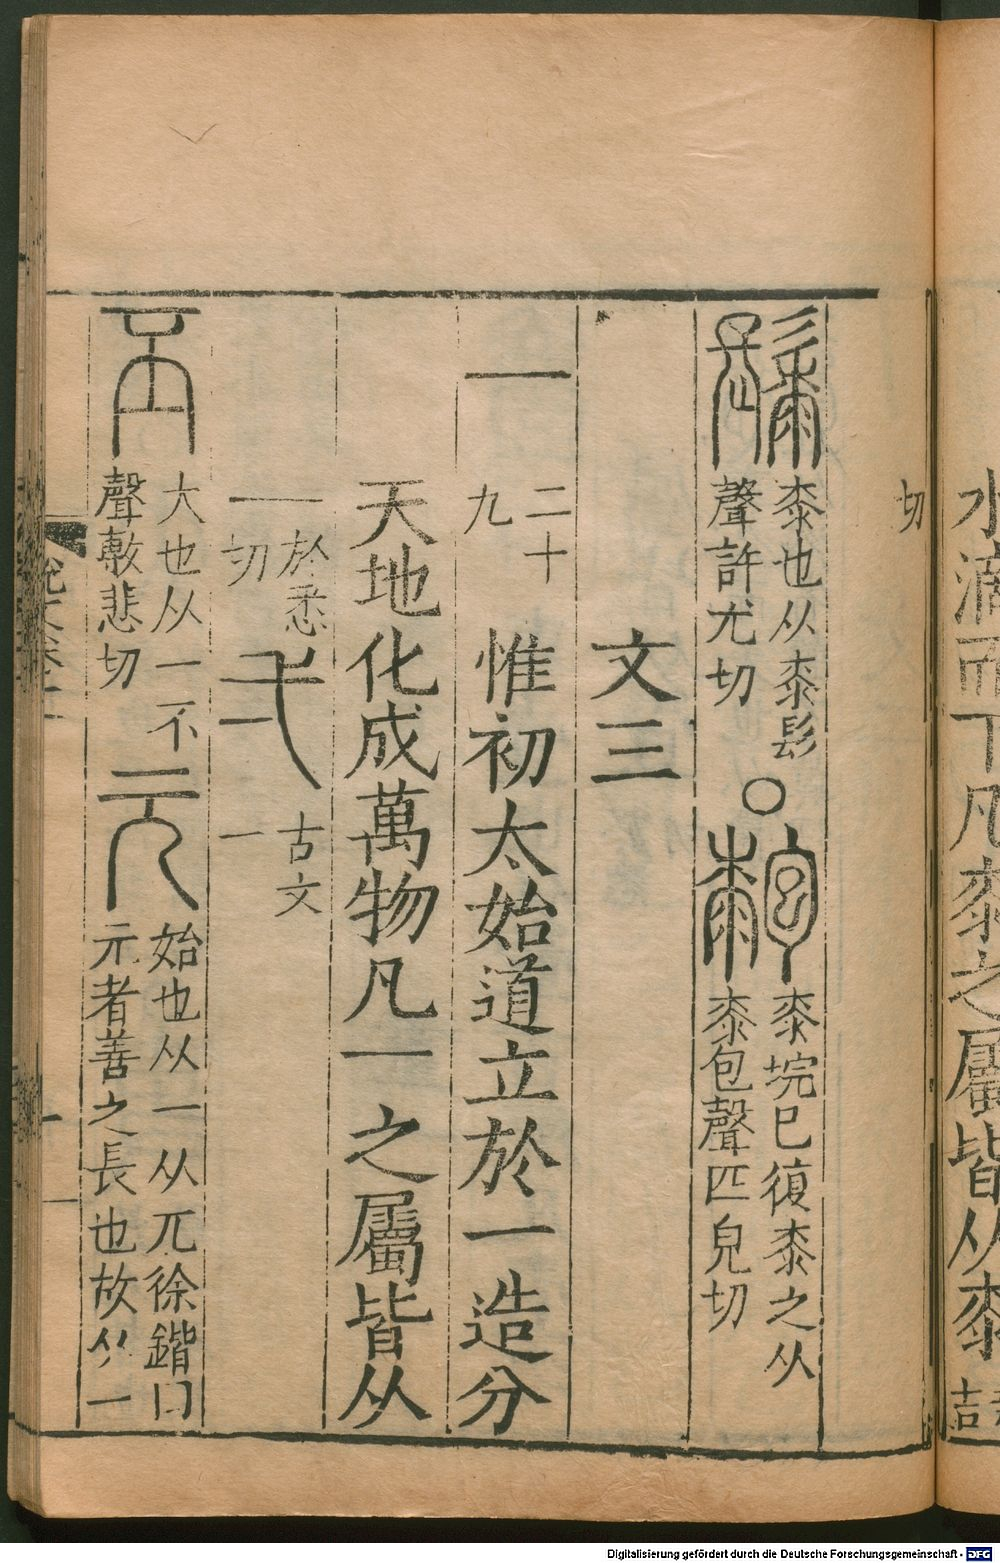 水滴而下凡桼之屬皆从桼
切
䰍 桼也从桼髟
聲許尤切
○
𣀩 桼垸巳復桼之从
桼包聲匹皃切
文三
一 二十
九
惟初太始道立於一造分
天地化成萬物凡一之屬皆从
一 於悉
切
弌 古文
一
丕 大也从一不
聲敷悲切
元 始也从一从兀徐鍇曰
元者善之長也故从一
Digitalisierung gefördert durch die Deutsche Forschungsgemeinschaft - DFG